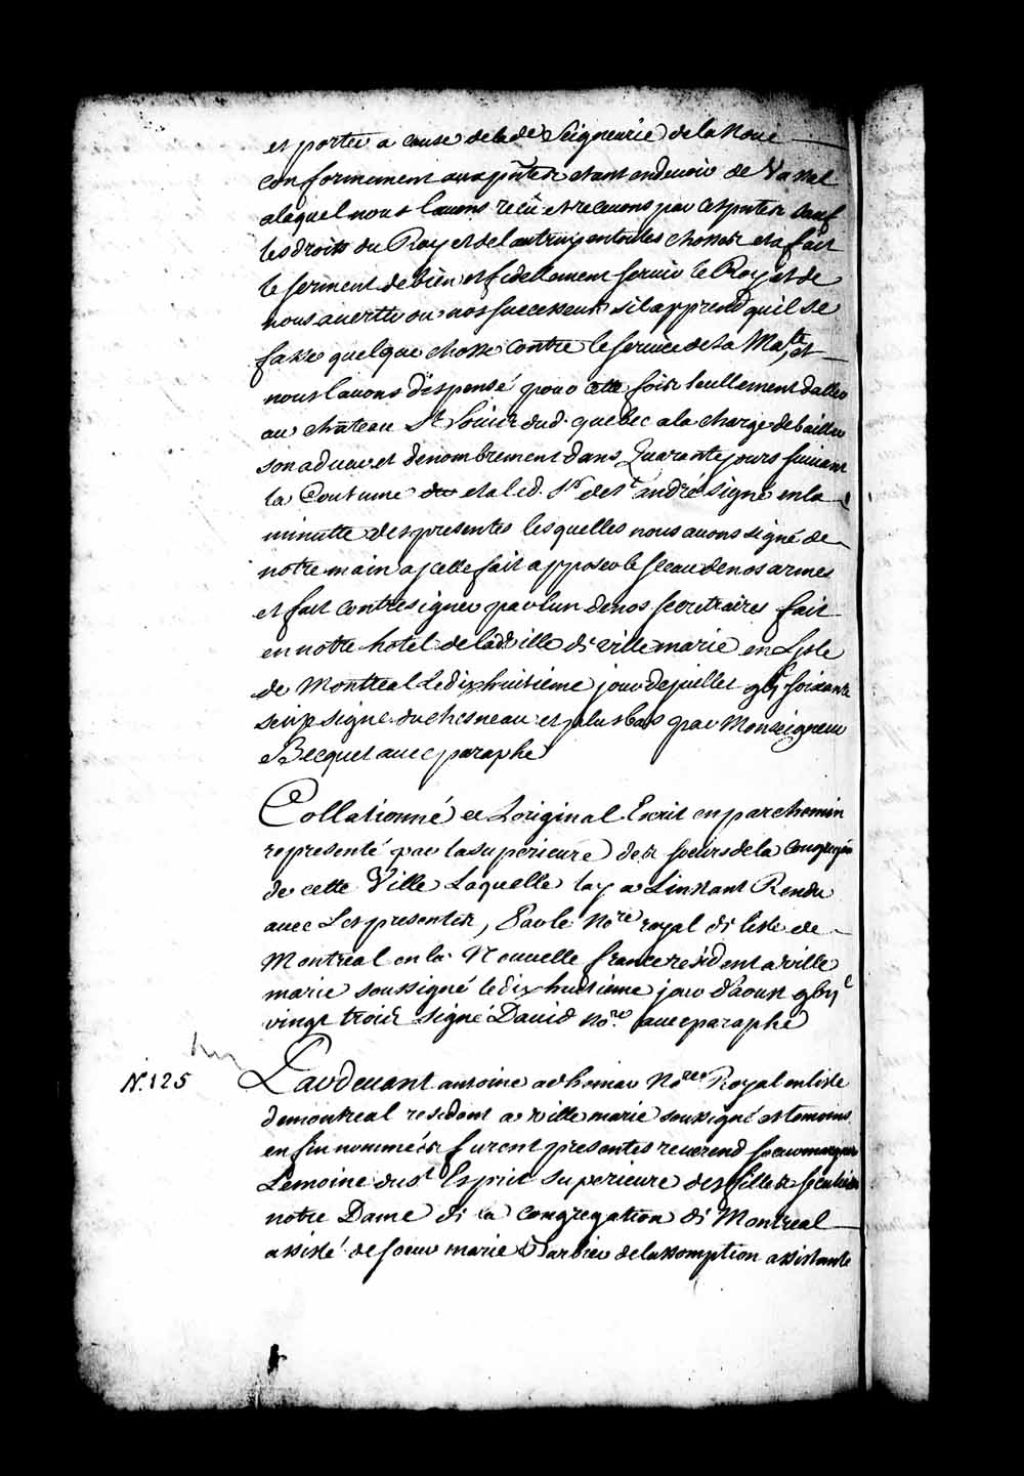 et porter a cause de lad.e Seigneurie de la Noüe
conformement auxp̃ntes et ant endevoir de Vassal
alaquel nous l'avons recü et recevons par cesp̃ntes sauf
les droits du Roy et de l'autruy entoutes chosses et a fait
le serment de bien et fidellement servir le Roy et de
nous avertir ou nos successeurs s'il apprend qu'il se
fasse quelque chosse contre le service de sa Ma.té et
nous l'avons dispensé pour cette fois seullement daller
au château S.t Louis dud. quebec a la charge de bailler
son adveu et denombrement dans Quarante jours suivant
la Coutume et a led. S.r de S.t andré signé en la
minutte des presentes lesquelles nous avons signé de
notre main a jcelle fait apposer le sceau de nos armes
et fait contresigner par l'un de nos secretaires fait
en notre hotel de lad.e ville de ville marie en Lisle
de Montreal Le dix huitieme jour de juillet gbj.c soixante
seize signé du chesneau et plus bas par Monseigneur
Becquet avec paraphe
Collationné a L'original Ecrit en parchemin
representé par la superieure des soeurs de la congregãon
de cette Ville Laquelle la y a L'instant Rendu
avec Les presentes, Par le No.re royal de l'isle de
Montreal en la Nouvelle france résident a ville
marie soussigné le dix huitieme jour d'aoust gbij.c
vingt trois signé David No.re avec paraphe
N.o 125 Pardevant antoine adhemar No.re Royal en l'isle
de montreal resident a ville marie soussigné et temoins
en fin nommés furent presentes reverend soeur margrite
Lemoine du S.t Esprit superieure des filles seculieres
notre Dame de la congregation de Montreal
assisté de soeur marie Barbier de l'assomption assistante